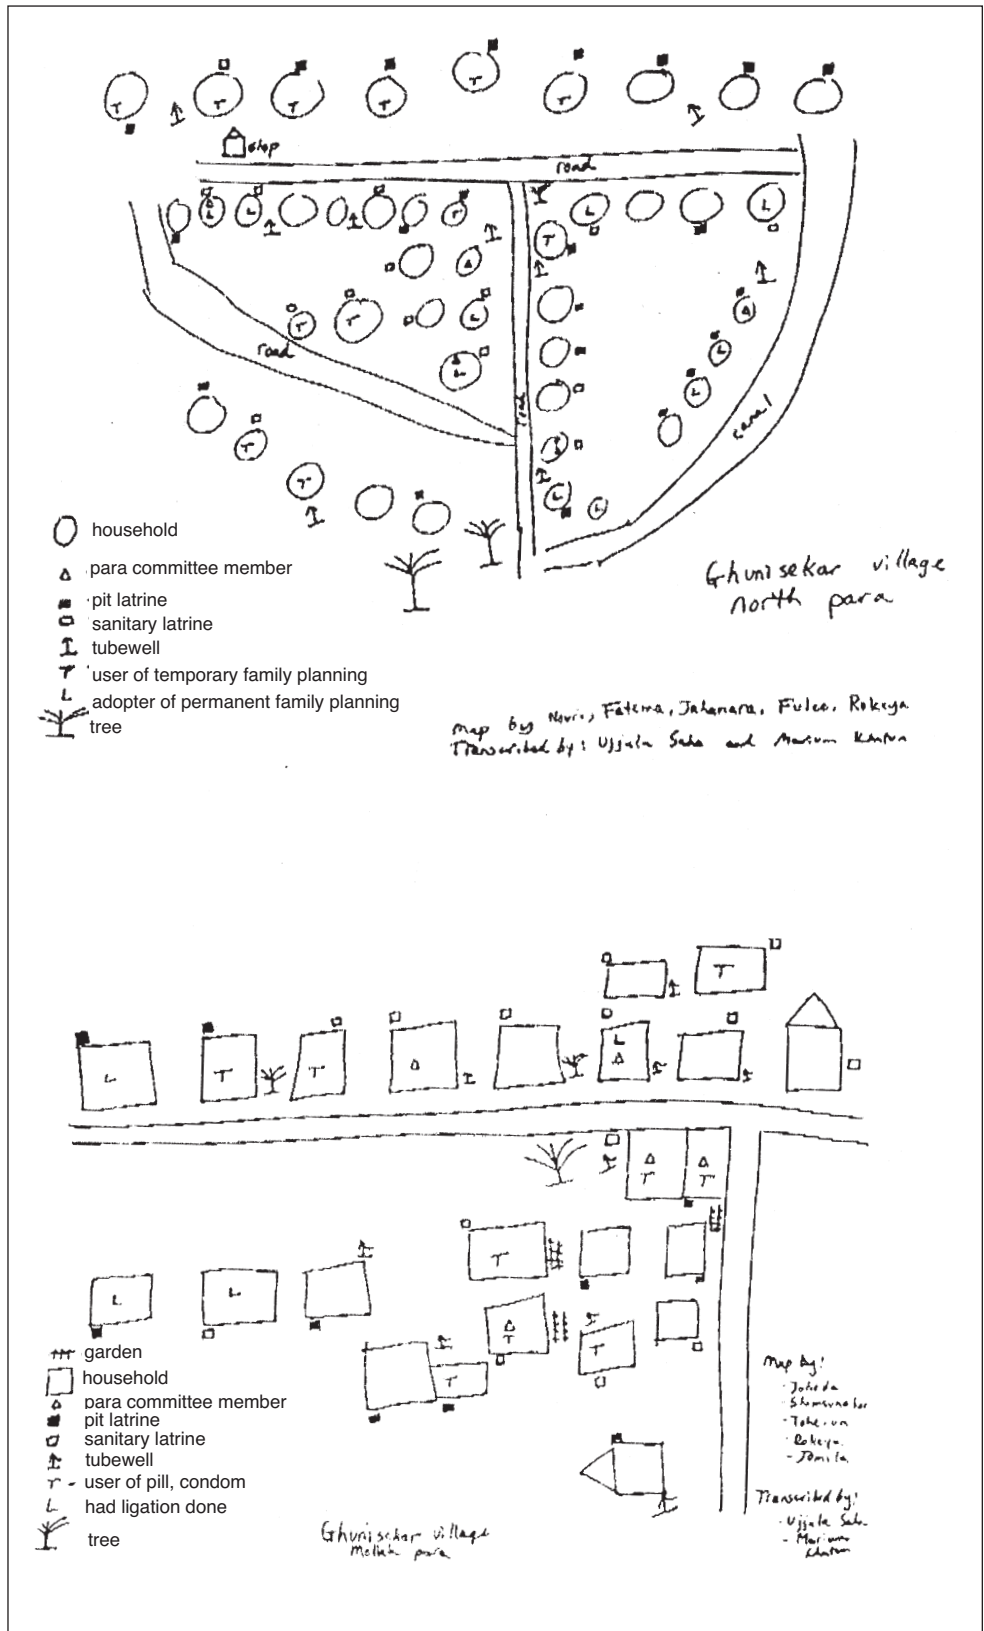 shop
road
road
road
canal
household
para committee member
pit latrine
sanitary latrine
tubewell
T user of temporary family planning
L adopter of permanent family planning
tree
Ghunisekar village
north para
Map by Nouri, Fatema, Jahanara, Fulee, Rokeya
Transcribed by: Ujjala Saha and Marium Khatun
garden
household
para committee member
pit latrine
sanitary latrine
tubewell
T - user of pill, condom
L had ligation done
tree
Ghunisekar village
Mollah para
Map by:
- Joheda
- Shamsunahar
- Rokeya
- Jomila
Transcribed by:
- Ujjala Saha
- Marium
Khatun